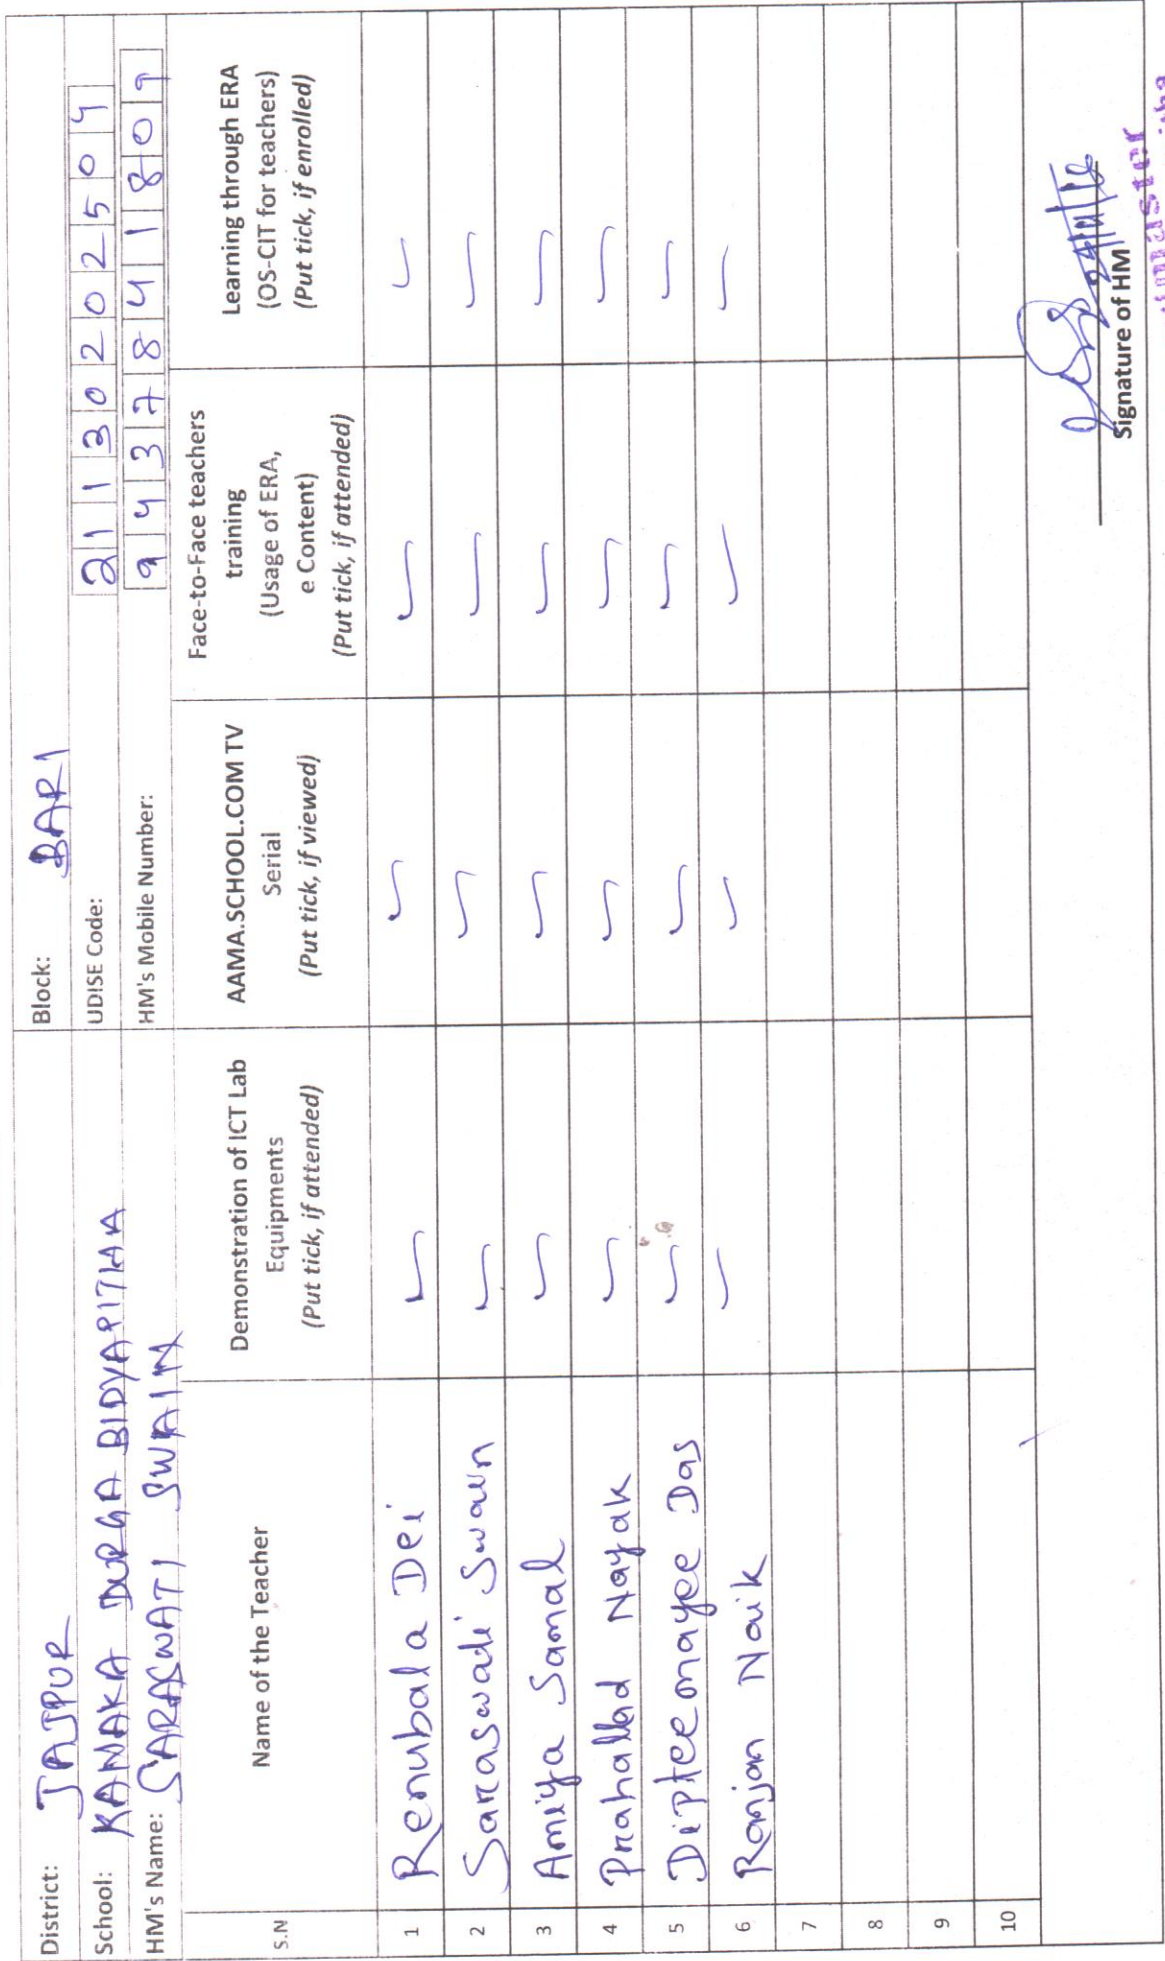 District: JAJPUR Block: BARI
School: KANAKA DURGA BIDYAPITHA UDISE Code: 21130202504
HM's Name: SARASWATI SWAIN HM's Mobile Number: 9437841809
S.N Name of the Teacher Demonstration of ICT Lab Equipments (Put tick, if attended) AAMA.SCHOOL.COM TV Serial (Put tick, if viewed) Face-to-Face teachers training (Usage of ERA, e Content) (Put tick, if attended) Learning through ERA (OS-CIT for teachers) (Put tick, if enrolled)
1 Renubala Dei ✓ ✓ ✓ ✓
2 Saraswati Swain ✓ ✓ ✓ ✓
3 Amiya Samal ✓ ✓ ✓ ✓
4 Prahallad Nayak ✓ ✓ ✓ ✓
5 Dipteemayee Das ✓ ✓ ✓ ✓
6 Ranjan Naik ✓ ✓ ✓ ✓
7
8
9
10
Signature of HM